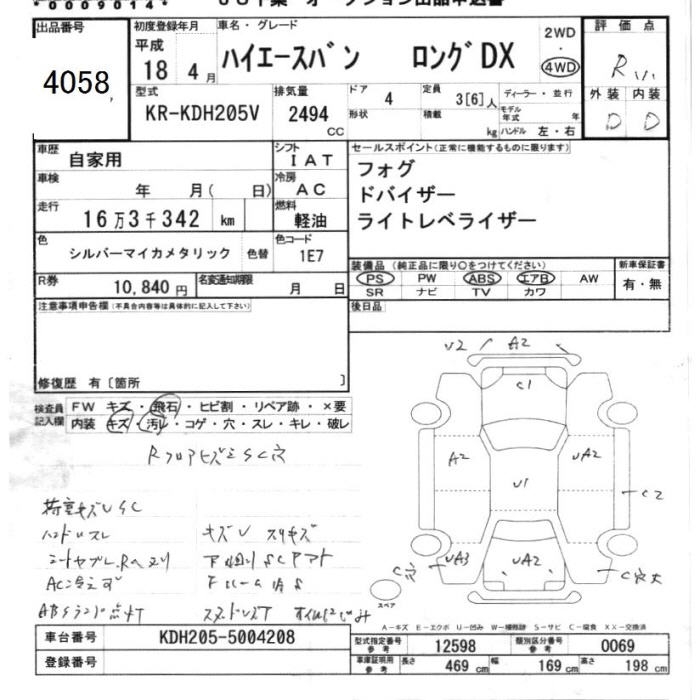 *0009014*
出品番号
4058
初度登録年月
平成
18 4月
車名・グレード
ハイエースバン ロングDX
2WD
・
4WD
評価点
R
外装 内装
D D
型式
KR-KDH205V
排気量
2494
CC
ドア
4
形状
定員
3[6]人
積載
kg
ディーラー・並行
モデル年式 年
ハンドル 左・右
車歴
自家用
シフト
IAT
車検
年 月( 日)
冷房
AC
走行
16万3千342 km
燃料
軽油
色
シルバーマイカメタリック
色替
色コード
1E7
R券
10,840円
名変通知期限
月 日
セールスポイント(正常に機能するものに限ります)
フォグ
ドバイザー
ライトレベライザー
装備品(純正品に限り○をつけてください)
PS PW ABS エアB AW
SR ナビ TV カワ
新車保証書
有・無
後日品
注意事項申告欄(不具合内容等は具体的に記入して下さい)
修復歴 有〔箇所 〕
検査員記入欄
FW キズ・飛石・ヒビ割・リペア跡・×要
内装 キズ・汚レ・コゲ・穴・スレ・キレ・破レ
RフロアヒズミSC穴
荷室キズUSC
ハンドルスレ
AC冷えず
ABSランプ点灯
キズU スリキズ
U2 A2
C1
A2 U1 UA2
C2
UA3 UA2
スペア
A-キズ E-エクボ U-凹み W-補修跡 S-サビ C-腐食 XX-交換済
車台番号
KDH205-5004208
登録番号
型式指定番号
参考
12598
類別区分番号
参考
0069
車庫証明用
参考
長さ 469 cm
幅 169 cm
高さ 198 cm